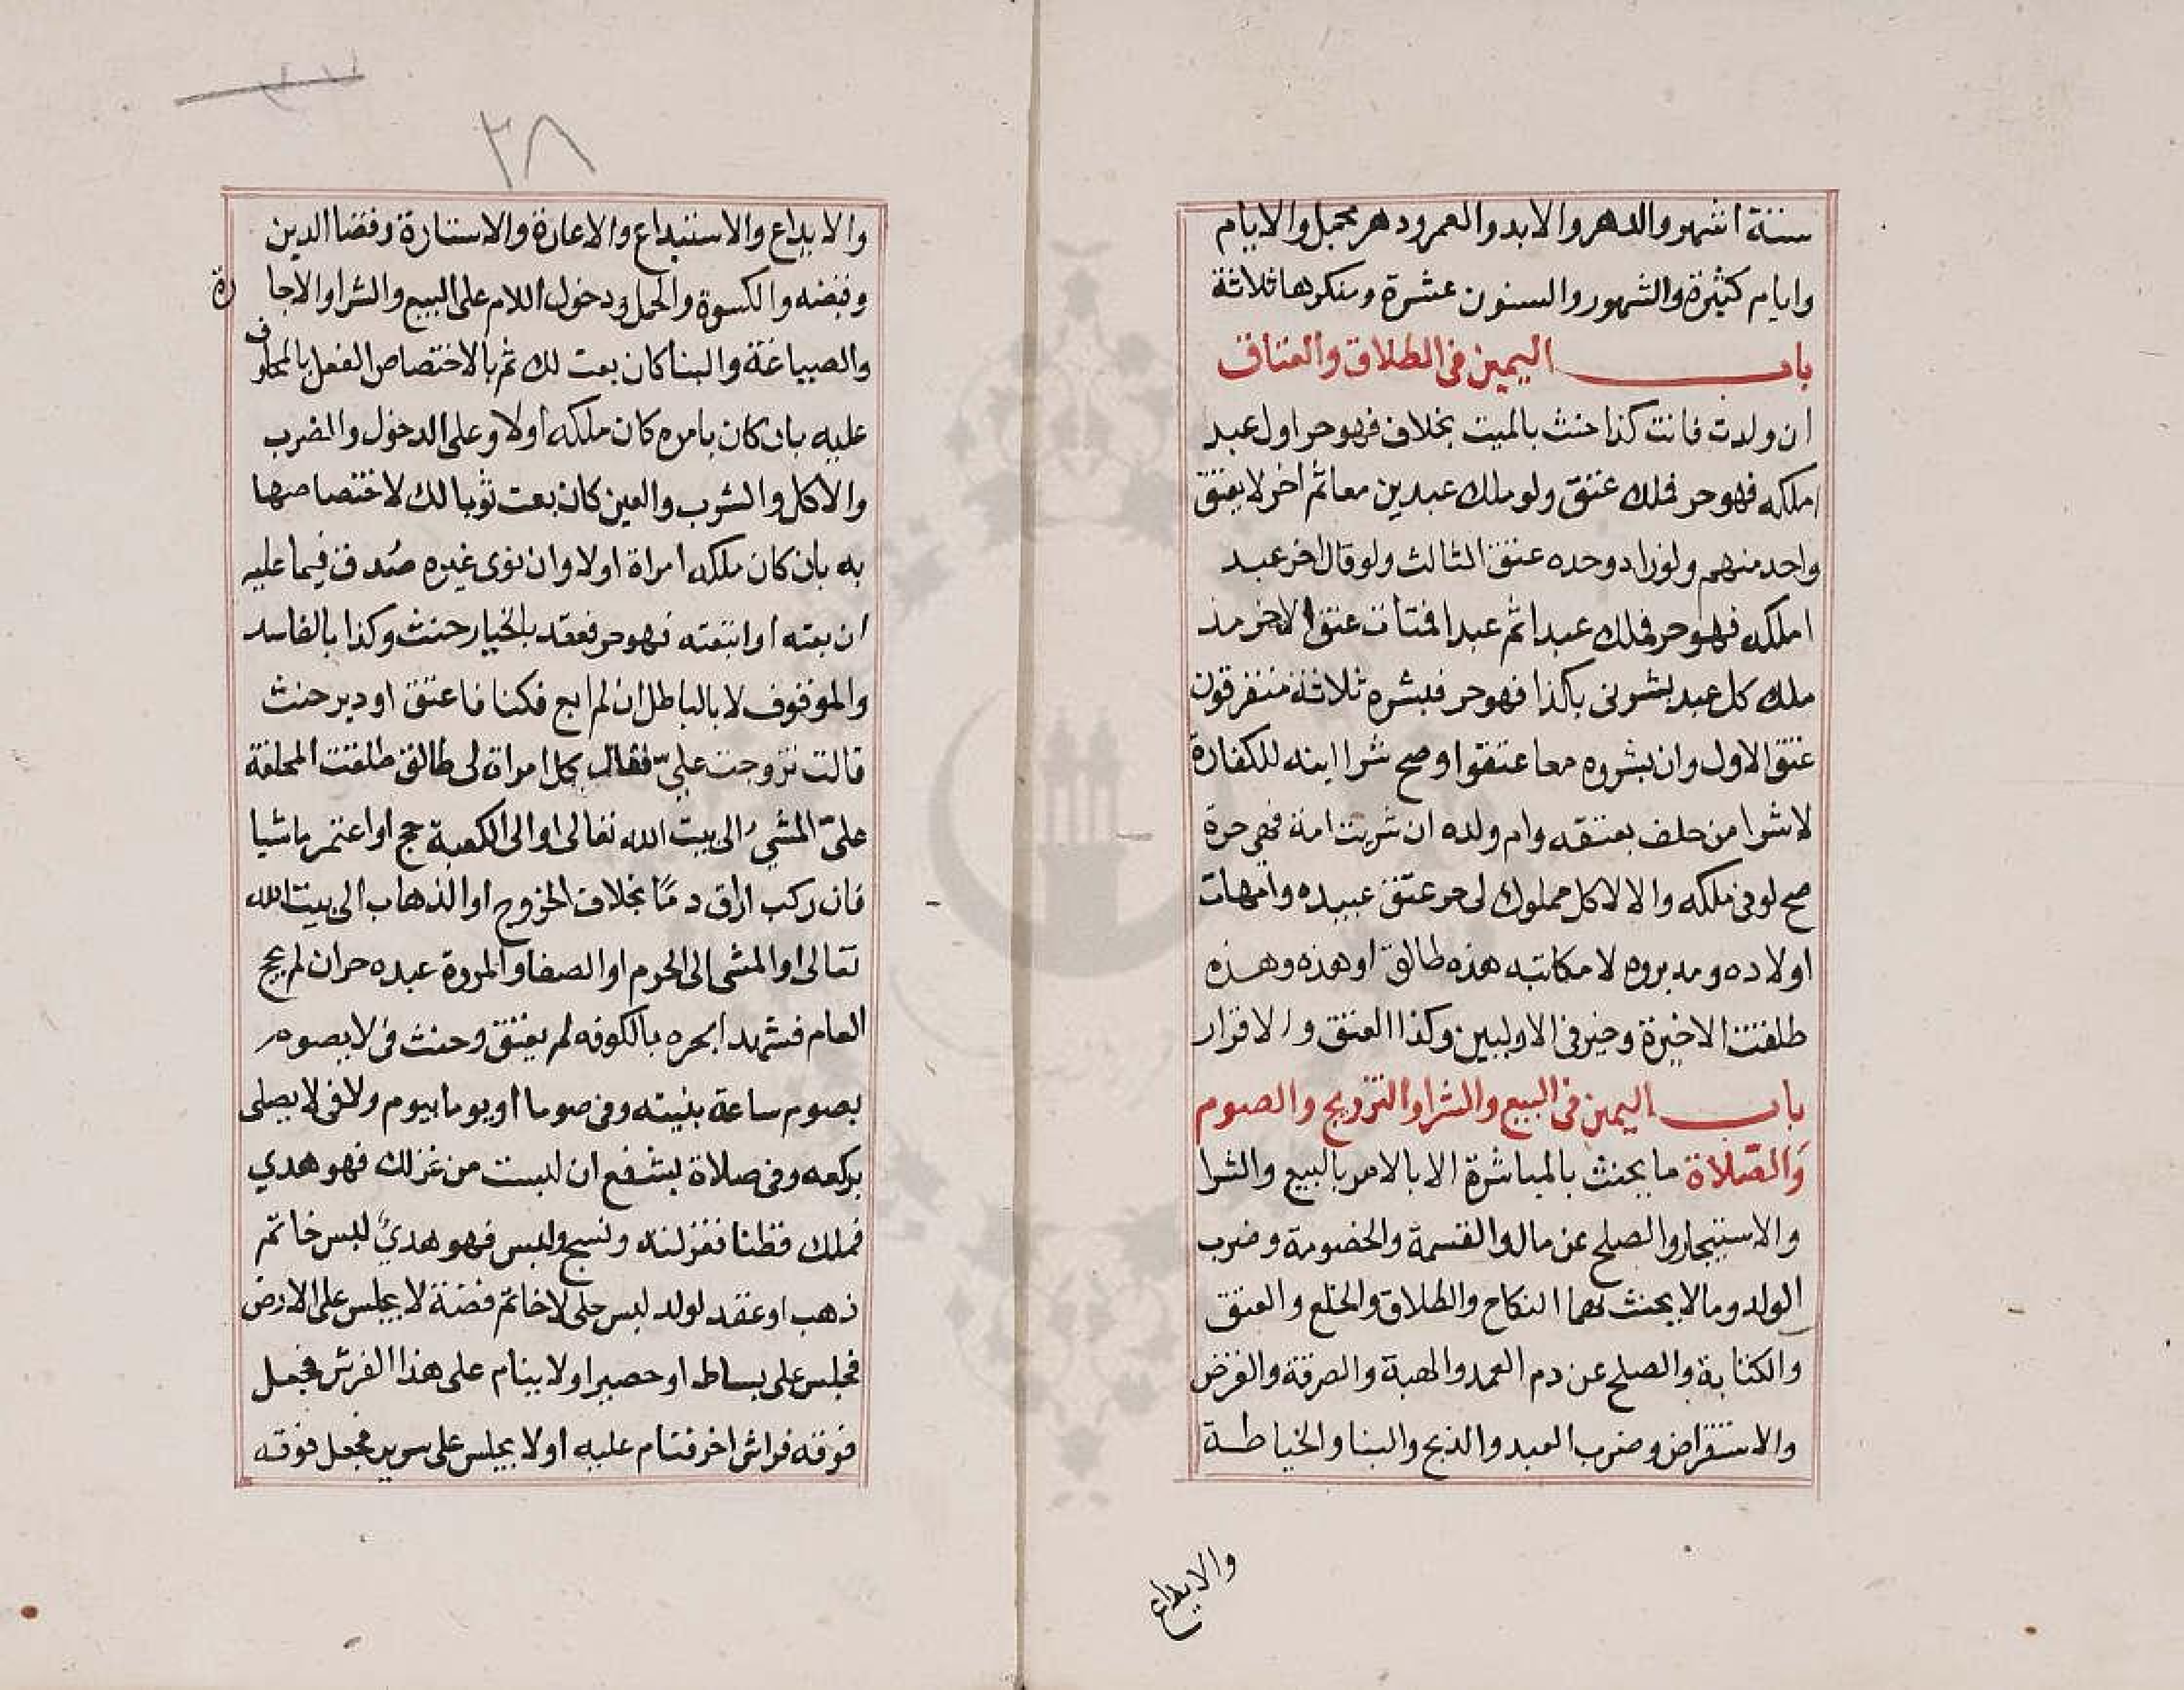 ستة اشهر والدهر والابد والعمر ودهر مجمل والايام
وايام كثيرة والشهور والسنون عشرة ومنكرها ثلاثة
باب اليمين فى الطلاق والعتاق
ان ولدت فانت كذا حنث بالميت بخلاف فهو حر اول عبد
املكه فهو حر فملك عتق ولو ملك عبدين معا ثم اخر لا يعتق
واحد منهم ولو زاد وحده عتق الثالث ولو قال اخر عبد
املكه فهو حر فملك عبدا ثم عبدا فمات عتق الاخر مذ
ملك كل عبد بشرنى بكذا فهو حر فبشره ثلاثة متفرقون
عتق الاول وان بشروه معا عتقوا وصح شرا ابنه للكفارة
لا شرا من حلف بعتقه وام ولده ان شريت امة فهى حرة
صح لو فى ملكه والا لا كل مملوك لى حر عتق عبيده وامهات
اولاده ومدبروه لا مكاتبه هذه طالق او هذه وهذه
طلقت الاخيرة وخير فى الاوليين وكذا العتق والاقرار
باب اليمين فى البيع والشرا والتزويج والصوم
والصلاة ما يحنث بالمباشرة الا بالامر بالبيع والشرا
والاستيجار والصلح عن مال والقسمة والخصومة وضرب
الولد وما لا يحنث بهما النكاح والطلاق والخلع والعتق
والكتابة والصلح عن دم العمد والهبة والصرفة والقرض
والاستقراض وضرب العبد والذبح والبنا والخياطة
والايداع
٢٨
والايداع والاستيداع والاعارة والاستارة وقضا الدين
وقبضه والكسوة والحمل ودخول اللام على البيع والشرا والاجارة
والصياغة والبنا كان بعت لك ثم بالاختصاص الفعل بالمحلوف
عليه بان كان بامره كان ملكه اولا وعلى الدخول والضرب
والاكل والشرب والعين كان بعت ثوبا لك لاختصاصها
به بان كان ملكه امراة اولا وان نوى غيره صدق فيما عليه
ان بعته او ابتعته فهو حر فعقد بالخيار حنث وكذا بالفاسد
والموقوف لا بالباطل ان لم ابع فكنا فاعتق او دبر حنث
قالت تزوجت على فقال كل امراة لى طالق طلقت المحلفة
على المشى الى بيت الله تعالى او الى الكعبة حج او اعتمر ماشيا
فان ركب اراق دما بخلاف الخروج او الذهاب الى بيت الله
تعالى او المشى الى الحرم او الصفا والمروة عبده حر ان لم يحج
العام فشهدا بحره بالكوفه لم يعتق وحنث فى لا يصوم
بصوم ساعة بنيته وفى صوما او يوما بيوم ولا فى لا يصلى
بركعه وفى صلاة بشفع ان لبست من غزلك فهو هدي
فملك قطنا فغزلته ونسج ولبس فهو هدي لبس خاتم
ذهب او عقد لولو لبس حلى لا خاتم فضة لا يجلس على الارض
فجلس على بساط او حصير او لا ينام على هذا الفرش فجعل
فوقه فراش اخر فنام عليه او لا يجلس على سرير فجعل فوقه